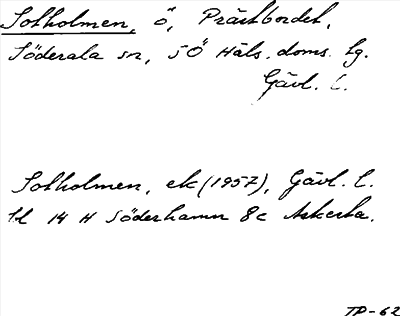 Solholmen, ö, Prästbordet,
Söderala sn, SÖ Häls. doms. tg.
Gävl. l.
Solholmen, ek (1957), Gävl. l.
bl 14 H Söderhamn 8c Askesta.
TD-62